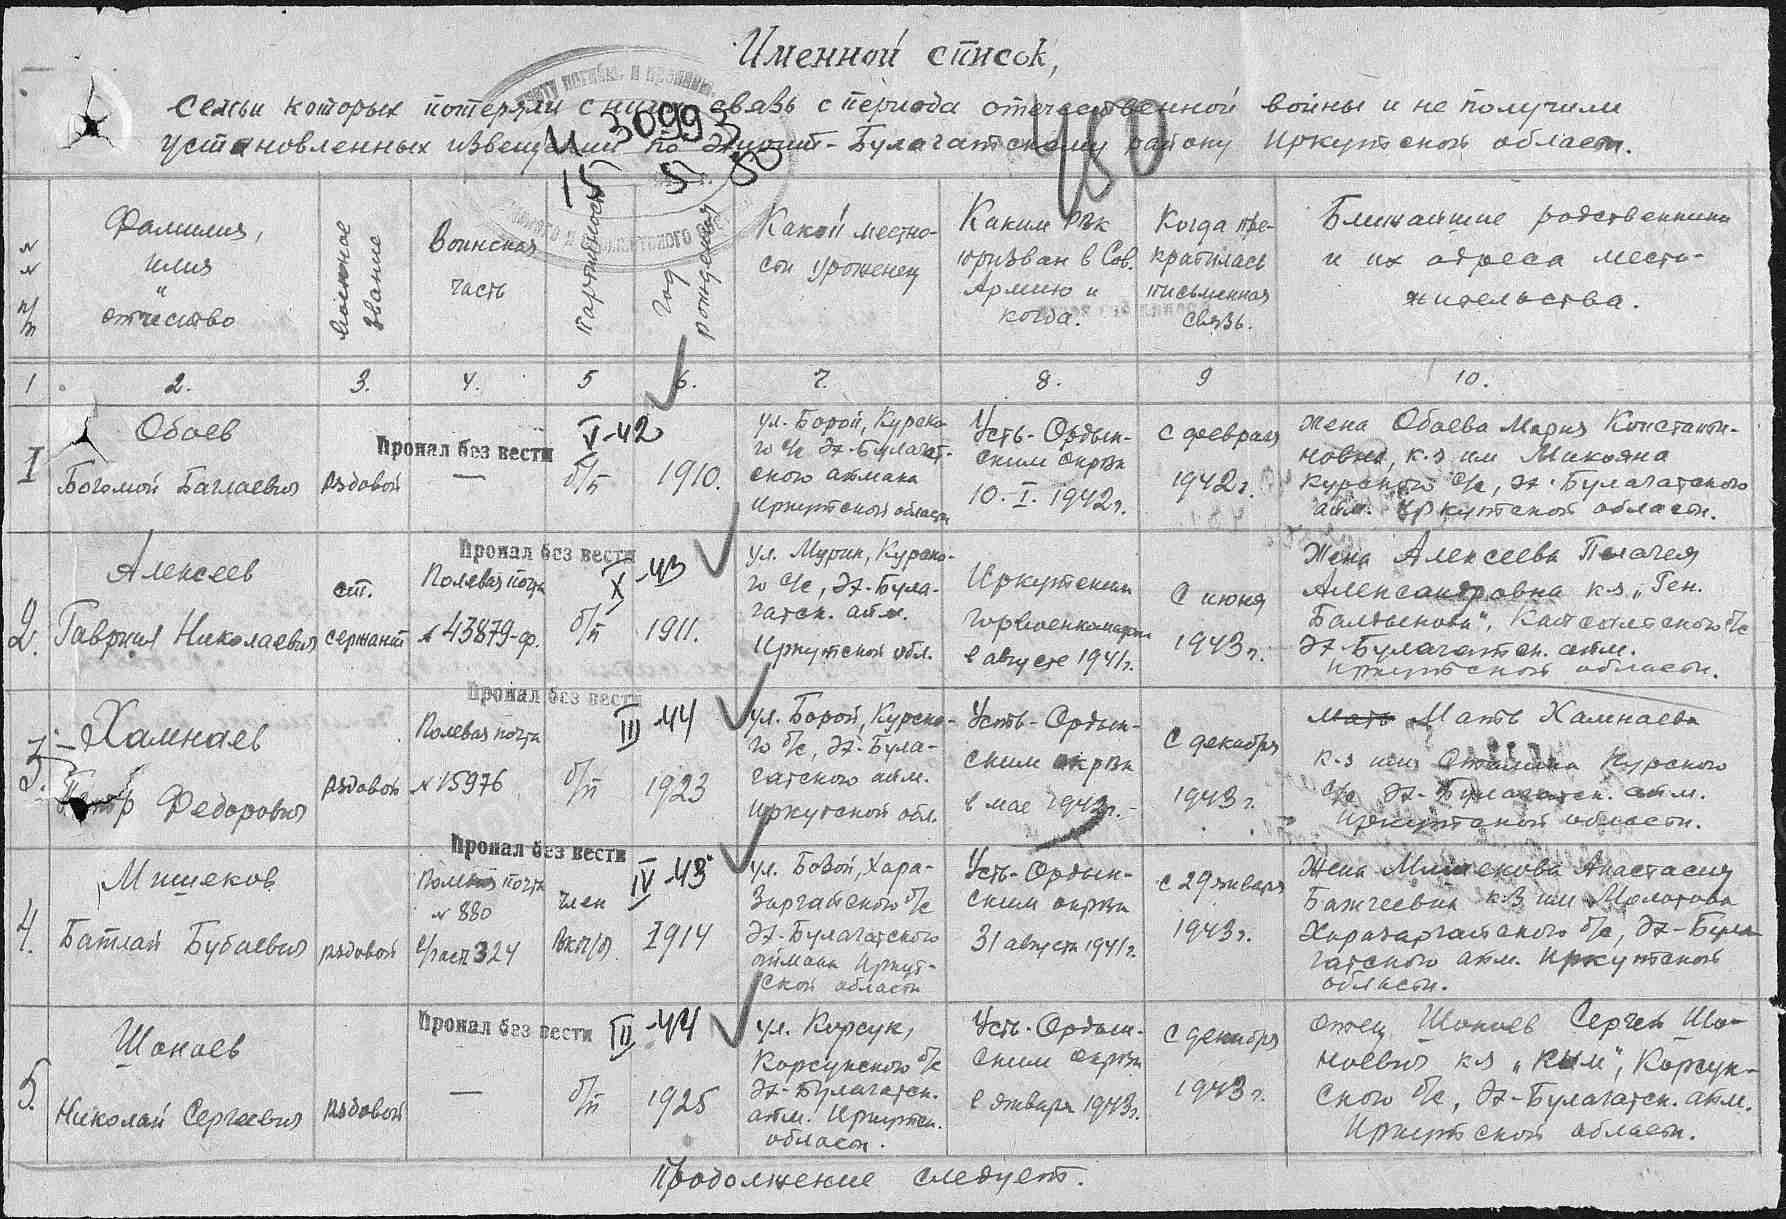 Именной список,
семьи которых потеряли с ними связь с периода отечественной войны и не получили
установленных извещений по Эхирит-Булагатскому району Иркутской области.
И 30993
15 5 50
450
№ № п/п
Фамилия, имя и отчество
Воинское звание
Воинская часть
Партийность
Год рождения
Какой местно-
сти уроженец
Каким РВК
призван в Сов.
Армию и
когда.
Когда пре-
кратилась
письменная
связь.
Ближайшие родственники
и их адреса место-
жительства.
1 2. 3. 4. 5 6. 7. 8. 9 10.
I
Обоев
Богомой Баглаевич
рядовой
Пропал без вести
—
V-42
б/п
1910.
ул. Борой, Курско-
го с/с Эх-Булагат-
ского аймака
Иркутской области
Усть-Ордын-
ским окрвк
10. I. 1942г.
с февраля
1942г.
Жена Обоева Мария Константи-
новна, к-з им Микояна
Курского с/с, Эх-Булагатского
айм. Иркутской области.
2.
Алексеев
Гаврил Николаевич
ст.
сержант
Пропал без вести
Полевая почта
№ 43879-ф.
X-43
б/п
1911.
ул. Мурин, Курско-
го с/с, Эх-Була-
гатск. айм.
Иркутской обл.
Иркутским
горвоенкоматом
в августе 1941г.
с июня
1943г.
Жена Алексеева Пелагея
Александровна к-з „Ген.
Эх-Булагатск. айм.
Иркутской области.
3.
Хамнаев
Петр Федорович
рядовой
Пропал без вести
Полевая почта
№ 15976
III-44
б/п
1923
ул. Борой, Курско-
го с/с, Эх-Була-
гатского айм.
Иркутской обл.
Усть-Ордын-
ским окрвк
в мае 1943г.
с декабря
1943г.
Мать Мать Хамнаева
к-з им Сталина Курского
с/с Эх-Булагатск. айм.
Иркутской области.
4.
Мишеков
Батлай Бубаевич
рядовой
Пропал без вести
Полевая почта
№ 880
часть 324
IV-43
член
ВКП/б/
1914
ул. Бовой, Хара-
Заргайского с/с
Эх-Булагатского
аймака Иркут-
ской области
Усть-Ордын-
ским окрвк
31 августа 1941г.
с 29 января
1943г.
Жена Мишекова Анастасия
Бажеевна к-з им Молотова
Харазаргайского с/с, Эх-Була-
гатского айм. Иркутской
области.
5.
Шоноев
Николай Сергеевич
рядовой
Пропал без вести
—
III-44
б/п
1925
ул. Корсук,
Корсукского с/с
Эх-Булагатск.
айм. Иркутск.
области.
Усть-Ордын-
ским окрвк
в январе 1943г.
с декабря
1943г.
отец Шоноев Сергей Шо-
ноевич к-з „КИМ“, Корсук-
ского с/с, Эх-Булагатск. айм.
Иркутской области.
Продолжение следует.